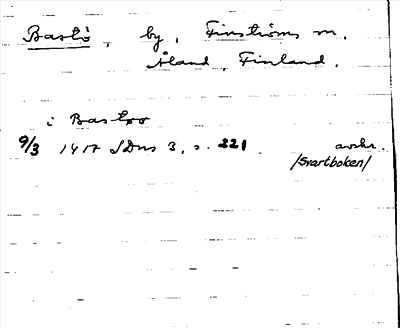 Bastö, by, Finströms sn.
Åland, Finland.
i Bastoo
9/3 1417 SDns 3, s. 221 avskr.
/Svartboken/